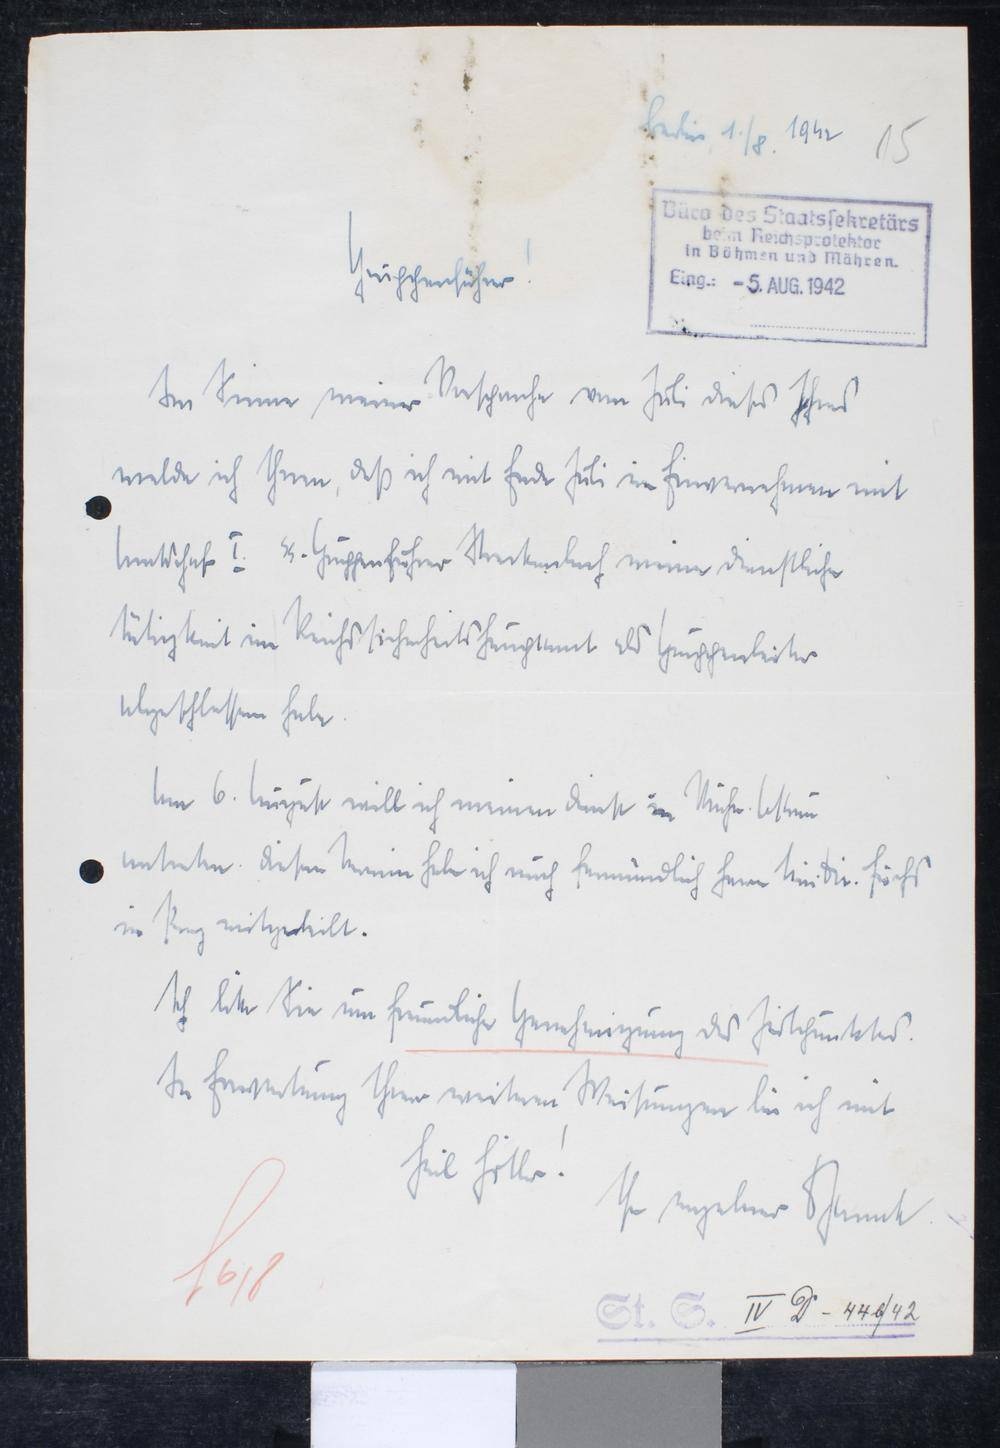 Berlin, 1./8. 1942
15
Büro des Staatssekretärs
beim Reichsprotektor
in Böhmen und Mähren.
Eing.: - 5. AUG. 1942
Gruppenführer!
Im Sinne meiner Vorsprache vom Juli dieses Jahres
melde ich Ihnen, daß ich mit Ende Juli im Einvernehmen mit
Amtschef I. SS-Gruppenführer Streckenbach meine dienstliche
Tätigkeit im Reichssicherheitshauptamt als Gruppenleiter
abgeschlossen habe.
Am 6. August will ich meinen Dienst in Mähr. Ostrau
antreten. Diesen Termin habe ich auch fernmündlich Herrn Min. Dir. Fuchs
in Prag mitgeteilt.
Ich bitte Sie um freundliche Genehmigung des Zeitpunktes.
In Erwartung Ihrer weiteren Weisungen bin ich mit
Heil Hitler!
Ihr ergebener
6/8
St. S. IV D - 446/42